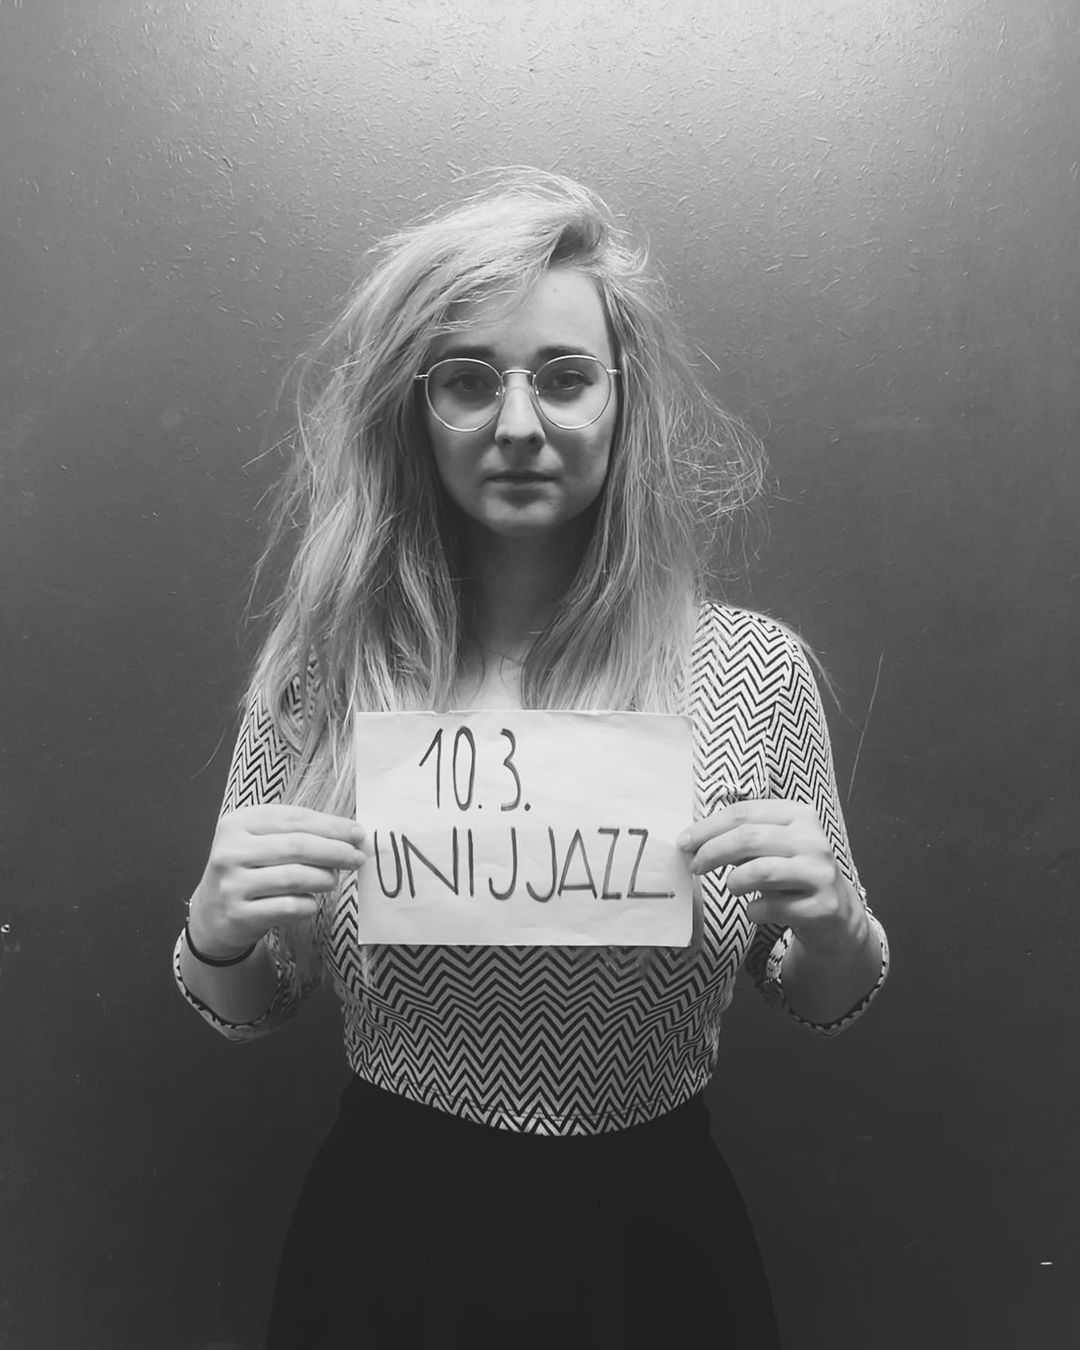 10.3.
UNIJJAZZ